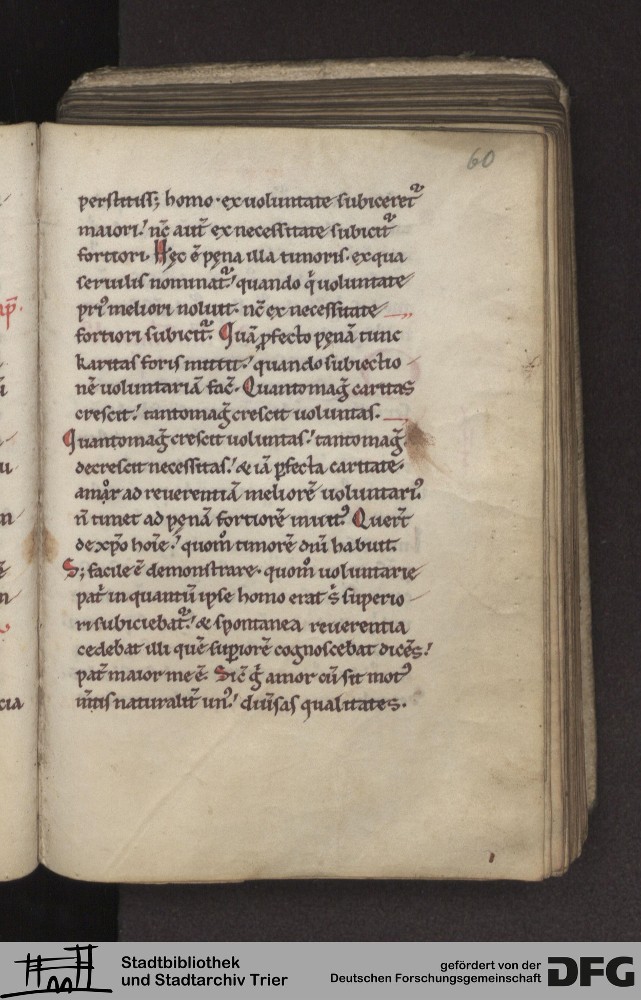 60
perstitiss; homo · ex uoluntate subiceret᷑
maiori! nc̄ aut̄ ex necessitate subicit᷑
fortiori · Hęc ē pęna illa timoris · ex qua
seruilis nominat᷑! quando q̇ uoluntate
pri⁹ meliori noluit · nc̄ ex necessitate
fortiori subicit᷑. Quā ꝓfecto pęnā tunc
karitas foris mittit! quando subiectio
nē uoluntariā fac̄ · Quanto mag̅ caritas
crescit! tanto mag̅ crescit uoluntas.
Quanto mag̅ crescit uoluntas! tanto mag̅
decrescit necessitas! & iā ꝑfecta caritate ·
amor ad reuerentiā meliorē uoluntari⁹
n̄ timet ad pęnā fortiorē inuit⁹ Querit̄
de xp̄o hoīe! quom̊ timorē dn̄i habuit.
S; facile ē demonstrare · quom̊ uoluntarie
pat̄i in quantū ipse homo erat s̄ superio
ri subiciebat᷑! & spontanea reuerentia
cedebat illi quē suꝑiorē cognoscebat dicēs!
pat̄ maior me ē. Sic̄ g̊ amor cū sit mot⁹
m̄tis naturalit̄ un⁹! diūsas qualitates ·
cia
Stadtbibliothek
und Stadtarchiv Trier
gefördert von der
Deutschen Forschungsgemeinschaft
DFG